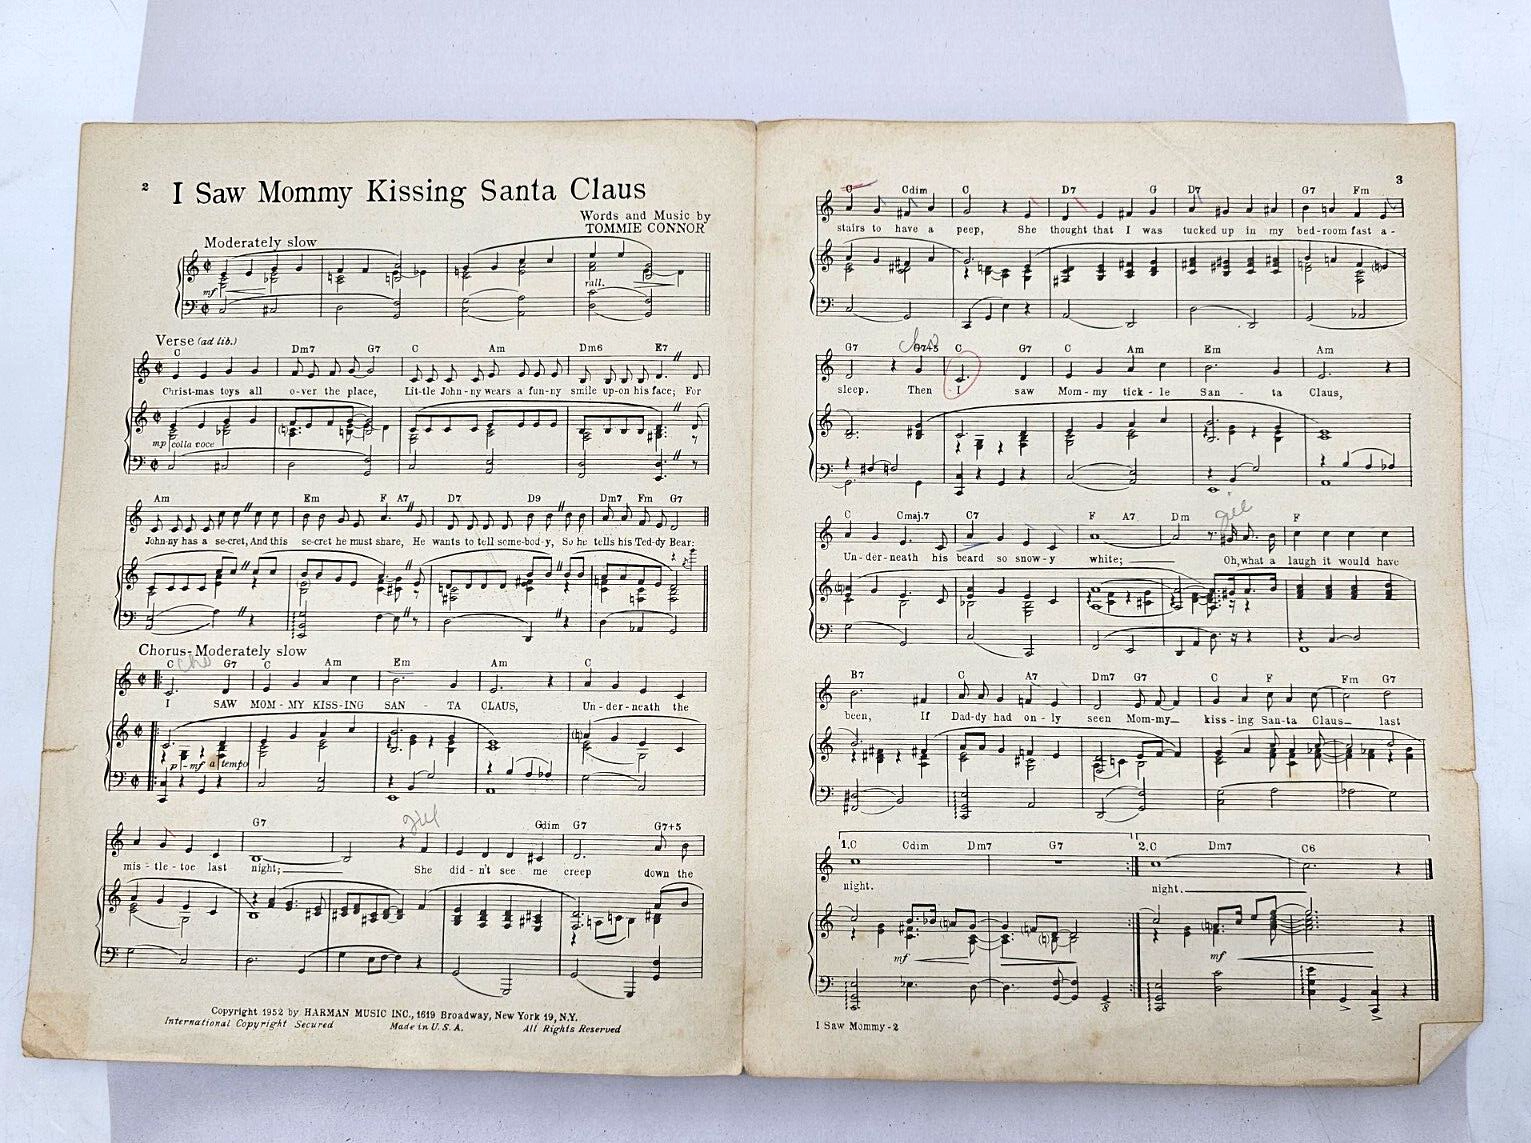 2
I Saw Mommy Kissing Santa Claus
Words and Music by
TOMMIE CONNOR
Moderately slow
mf
rall.
Verse (ad lib.)
C Dm7 G7 C Am Dm6 E7
Christ-mas toys all o-ver the place, Lit-tle John-ny wears a fun-ny smile up-on his face; For
mp colla voce
Am Em F A7 D7 D9 Dm7 Fm G7
John-ny has a se-cret, And this se-cret he must share, He wants to tell some-bod-y, So he tells his Ted-dy Bear:
Chorus-Moderately slow
C cho G7 C Am Em Am C
I SAW MOM-MY KISS-ING SAN-TA CLAUS, Un-der-neath the
p-mf a tempo
G7 Gdim G7 G7+5
mis-tle-toe last night; She did-n't see me creep down the
Copyright 1952 by HARMAN MUSIC INC., 1619 Broadway, New York 19, N.Y.
International Copyright Secured Made in U.S.A. All Rights Reserved
3
C Cdim C D7 G D7 G7 Fm
stairs to have a peep, She thought that I was tucked up in my bed-room fast a-
G7 G7+5 C G7 C Am Em Am
sleep. Then I saw Mom-my tick-le San-ta Claus,
C Cmaj.7 C7 F A7 Dm F
Un-der-neath his beard so snow-y white; Oh, what a laugh it would have
B7 C A7 Dm7 G7 C F Fm G7
been, If Dad-dy had on-ly seen Mom-my kiss-ing San-ta Claus last
1. C Cdim Dm7 G7 2. C Dm7 C6
night. night.
mf mf
I Saw Mommy-2